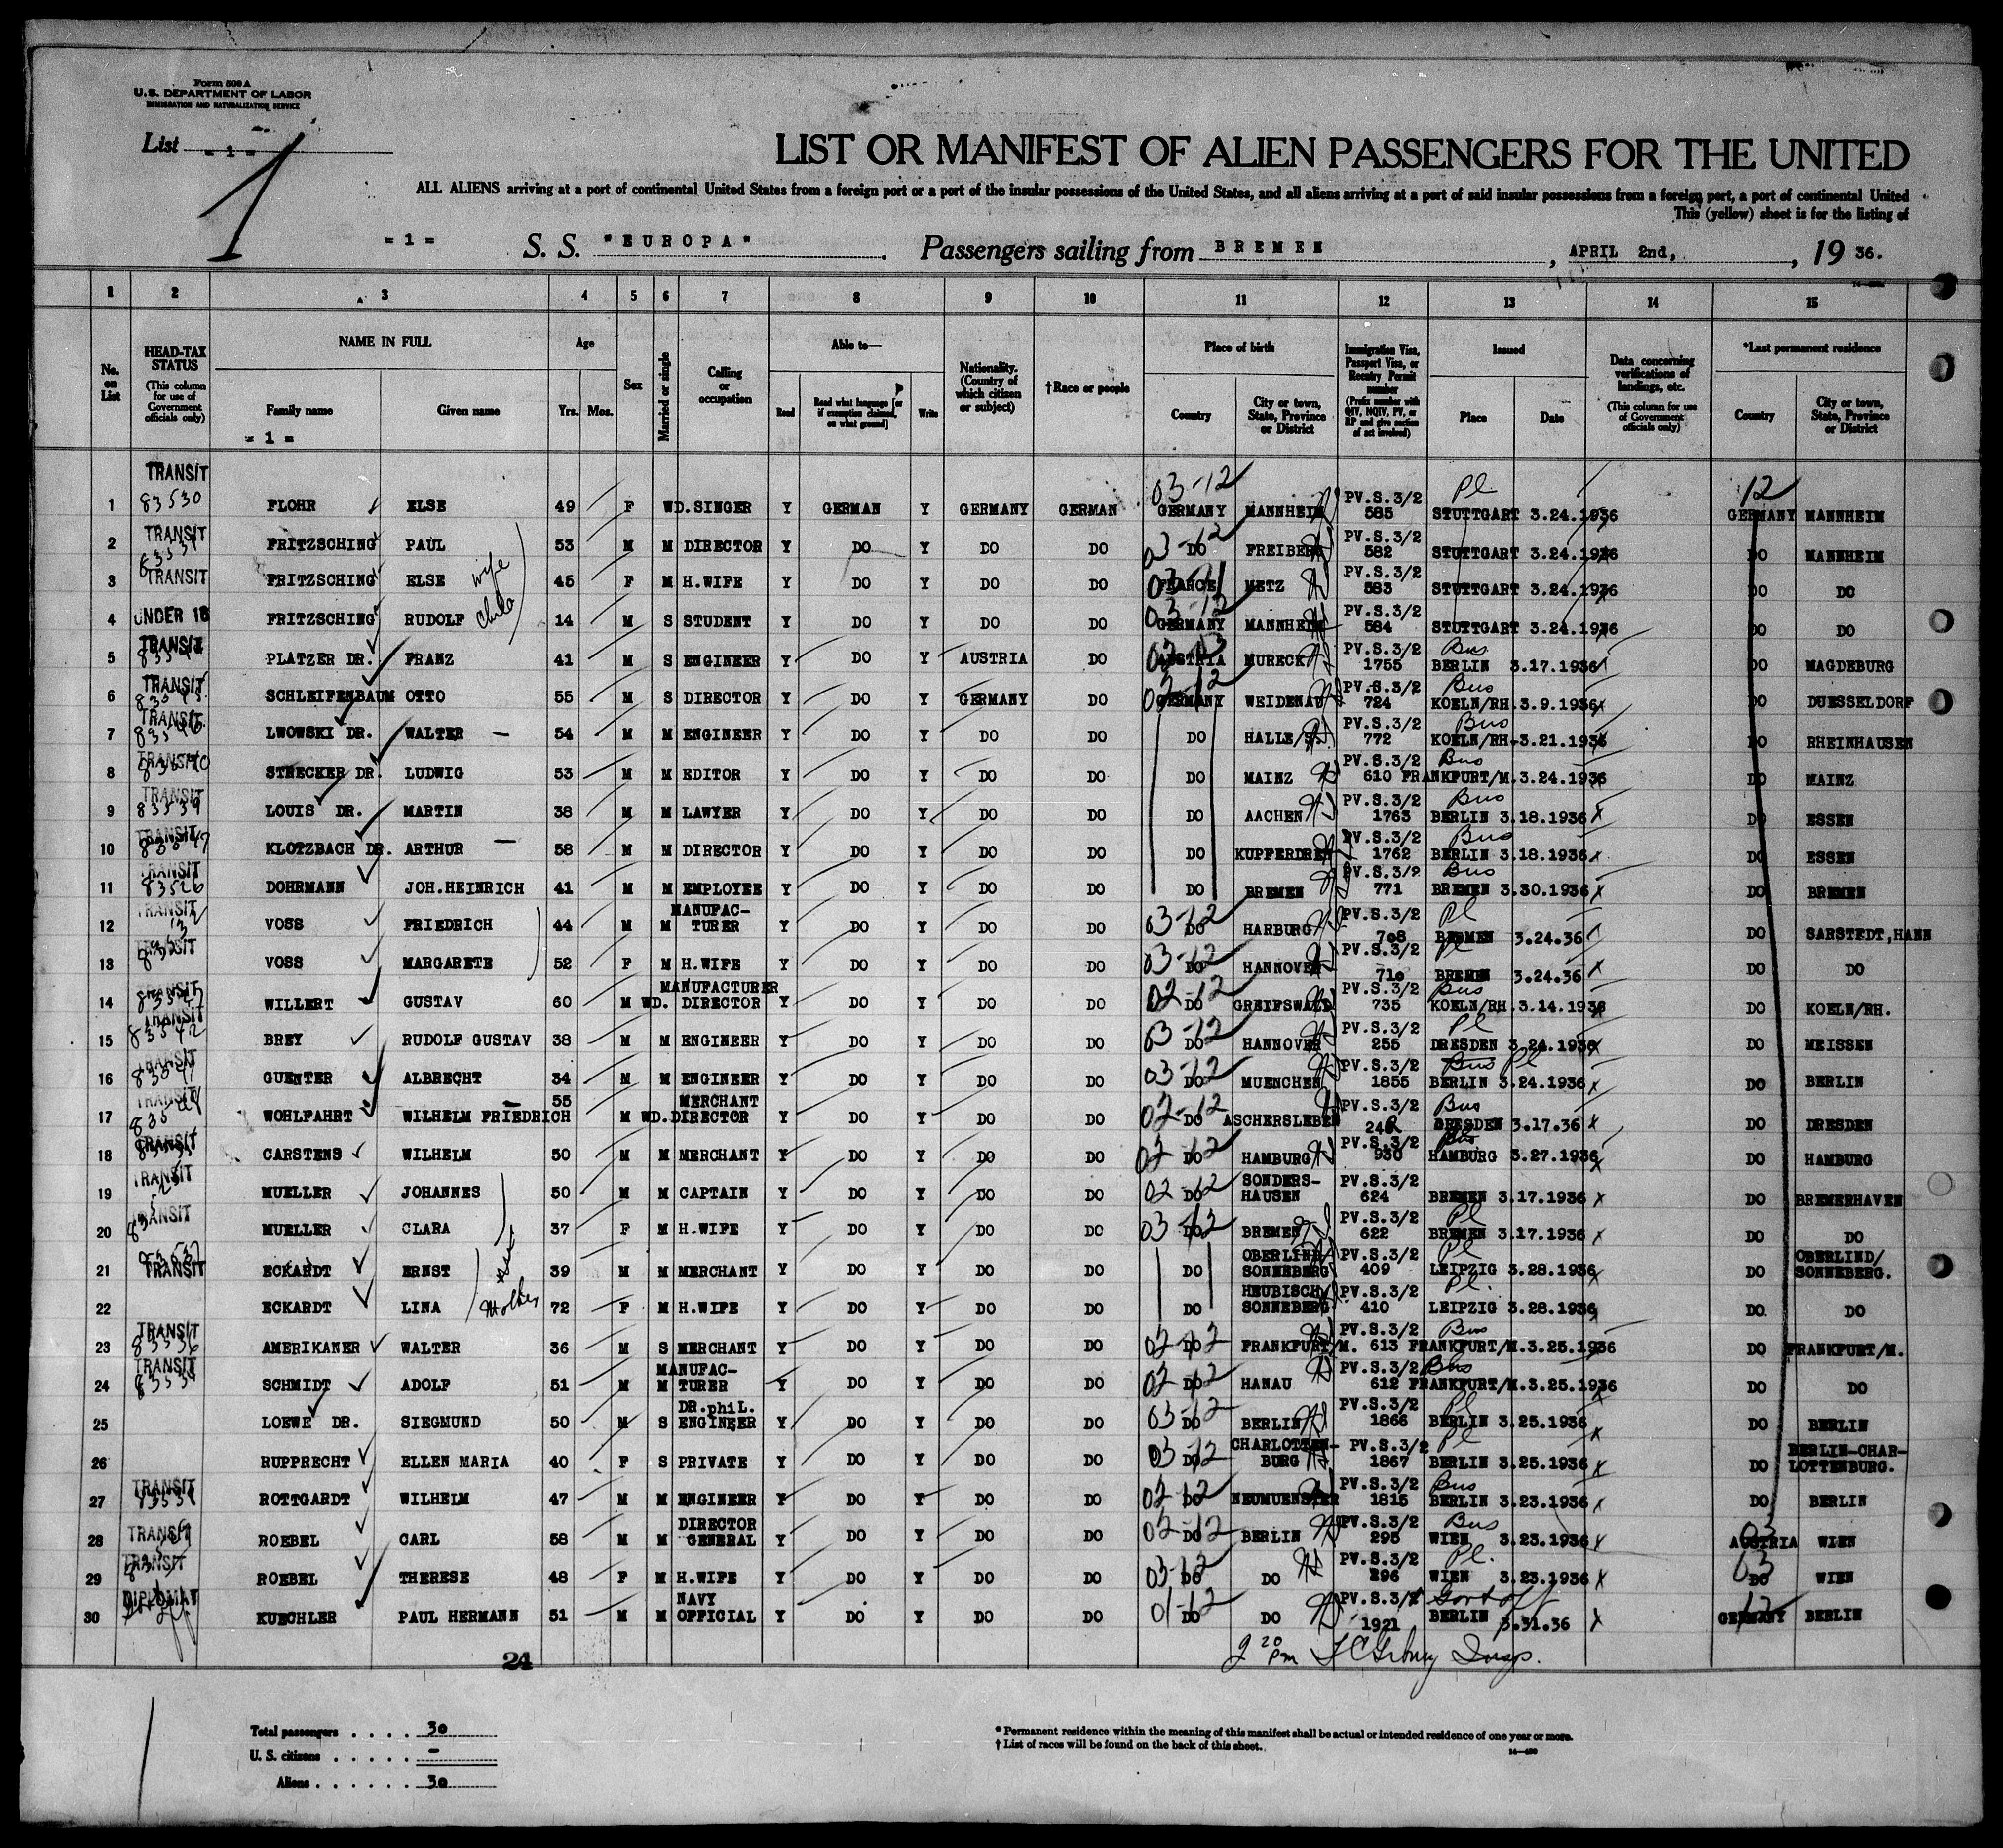 Form 500 A
U.S. DEPARTMENT OF LABOR
IMMIGRATION AND NATURALIZATION SERVICE
List = 1 =
1
LIST OR MANIFEST OF ALIEN PASSENGERS FOR THE UNITED
ALL ALIENS arriving at a port of continental United States from a foreign port or a port of the insular possessions of the United States, and all aliens arriving at a port of said insular possessions from a foreign port, a port of continental United
This (yellow) sheet is for the listing of
= 1 = S. S. "EUROPA". Passengers sailing from BREMEN, APRIL 2nd, 19 36.
1 2 3 4 5 6 7 8 9 10 11 12 13 14 15
No. on List
HEAD-TAX STATUS (This column for use of Government officials only)
NAME IN FULL Family name Given name
= 1 =
Age Yrs. Mos.
Sex
Married or single
Calling or occupation
Able to— Read Read what language [or if exemption claimed, on what ground] Write
Nationality. (Country of which citizen or subject)
†Race or people
Place of birth Country City or town, State, Province or District
Immigration Visa, Passport Visa, or Reentry Permit number (Prefix number with QIV, NQIV, PV, or RP and give section of act involved)
Issued Place Date
Data concerning verifications of landings, etc. (This column for use of Government officials only)
*Last permanent residence Country City or town, State, Province or District
1 TRANSIT 83530 FLOHR ELSE 49 F WD. SINGER Y GERMAN Y GERMANY GERMAN 03-12 GERMANY MANNHEIM PV.S.3/2 585 Pl STUTTGART 3.24.1936 12 GERMANY MANNHEIM
2 TRANSIT FRITZSCHING PAUL 53 M M DIRECTOR Y DO Y DO DO 03-12 DO FREIBERG PV.S.3/2 582 STUTTGART 3.24.1936 DO MANNHEIM
3 TRANSIT FRITZSCHING ELSE wife 45 F M H.WIFE Y DO Y DO DO FRANCE METZ PV.S.3/2 583 STUTTGART 3.24.1936 DO DO
4 UNDER 16 FRITZSCHING RUDOLF child 14 M S STUDENT Y DO Y DO DO 03-12 GERMANY MANNHEIM PV.S.3/2 584 STUTTGART 3.24.1936 DO DO
5 TRANSIT PLATZER DR. FRANZ 41 M S ENGINEER Y DO Y AUSTRIA DO AUSTRIA MURECK PV.S.3/2 1755 Bus BERLIN 3.17.1936 DO MAGDEBURG
6 TRANSIT SCHLEIFENBAUM OTTO 55 M S DIRECTOR Y DO Y GERMANY DO 02-12 GERMANY WEIDENAU PV.S.3/2 724 Bus KOELN/RH. 3.9.1936 DO DUESSELDORF
7 TRANSIT LWOWSKI DR. WALTER 54 M M ENGINEER Y DO Y DO DO DO HALLE/S. PV.S.3/2 772 Bus KOELN/RH. 3.21.1936 DO RHEINHAUSEN
8 TRANSIT STRECKER DR. LUDWIG 53 M M EDITOR Y DO Y DO DO DO MAINZ PV.S.3/2 610 Bus FRANKFURT/M. 3.24.1936 DO MAINZ
9 TRANSIT 83539 LOUIS DR. MARTIN 38 M M LAWYER Y DO Y DO DO DO AACHEN PV.S.3/2 1763 Bus BERLIN 3.18.1936 DO ESSEN
10 TRANSIT KLOTZBACH DR. ARTHUR 58 M M DIRECTOR Y DO Y DO DO DO KUPFERDREH PV.S.3/2 1762 Bus BERLIN 3.18.1936 DO ESSEN
11 TRANSIT 83526 DOHRMANN JOH.HEINRICH 41 M M EMPLOYEE Y DO Y DO DO DO BREMEN PV.S.3/2 771 Bus BREMEN 3.30.1936 DO BREMEN
12 TRANSIT VOSS FRIEDRICH 44 M M MANUFAC-TURER Y DO Y DO DO 03-12 DO HARBURG PV.S.3/2 708 Pl BREMEN 3.24.36 DO SARSTEDT,HANN
13 TRANSIT VOSS MARGARETE 52 F M H.WIFE Y DO Y DO DO 03-12 DO HANNOVER PV.S.3/2 710 Pl BREMEN 3.24.36 DO DO
14 TRANSIT WILLERT GUSTAV 60 M WD. MANUFACTURER DIRECTOR Y DO Y DO DO 02-12 DO GREIFSWALD PV.S.3/2 735 Bus KOELN/RH. 3.14.1936 DO KOELN/RH.
15 TRANSIT 83542 BREY RUDOLF GUSTAV 38 M M ENGINEER Y DO Y DO DO 03-12 DO HANNOVER PV.S.3/2 255 Pl DRESDEN 3.24.1936 DO MEISSEN
16 TRANSIT GUENTER ALBRECHT 34 M M ENGINEER Y DO Y DO DO 03-12 DO MUENCHEN PV.S.3/2 1855 Bus Pl BERLIN 3.24.1936 DO BERLIN
17 TRANSIT WOHLFAHRT WILHELM FRIEDRICH 55 M WD. MERCHANT DIRECTOR Y DO Y DO DO 02-12 DO ASCHERSLEBEN PV.S.3/2 Bus DRESDEN 3.17.36 DO DRESDEN
18 TRANSIT CARSTENS WILHELM 50 M M MERCHANT Y DO Y DO DO 02-12 DO HAMBURG PV.S.3/2 930 HAMBURG 3.27.1936 DO HAMBURG
19 TRANSIT MUELLER JOHANNES 50 M M CAPTAIN Y DO Y DO DO 02-12 DO SONDERS-HAUSEN PV.S.3/2 624 BREMEN 3.17.1936 DO BREMERHAVEN
20 TRANSIT MUELLER CLARA 37 F M H.WIFE Y DO Y DO DO 03-12 DO BREMEN PV.S.3/2 622 Pl BREMEN 3.17.1936 DO DO
21 TRANSIT ECKARDT ERNST 39 M M MERCHANT Y DO Y DO DO DO OBERLIND/ SONNEBERG PV.S.3/2 409 Pl LEIPZIG 3.28.1936 DO OBERLIND/ SONNEBERG.
22 ECKARDT LINA Mother 72 F M H.WIFE Y DO Y DO DO DO HEUBISCH/ SONNEBERG PV.S.3/2 410 Pl. LEIPZIG 3.28.1936 DO DO
23 TRANSIT 83536 AMERIKANER WALTER 36 M S MERCHANT Y DO Y DO DO 02-12 DO FRANKFURT/M. PV.S.3/2 613 Bus FRANKFURT/M. 3.25.1936 DO FRANKFURT/M.
24 TRANSIT SCHMIDT ADOLF 51 M M MANUFAC-TURER Y DO Y DO DO 02-12 DO HANAU PV.S.3/2 612 Bus FRANKFURT/M. 3.25.1936 DO DO
25 LOEWE DR. SIEGMUND 50 M S DR.phiL. ENGINEER Y DO Y DO DO 03-12 DO BERLIN PV.S.3/2 1866 Pl BERLIN 3.25.1936 DO BERLIN
26 RUPPRECHT ELLEN MARIA 40 F S PRIVATE Y DO Y DO DO 03-12 DO CHARLOTTEN-BURG PV.S.3/2 1867 Pl BERLIN 3.25.1936 DO BERLIN-CHAR-LOTTENBURG.
27 TRANSIT ROTTGARDT WILHELM 47 M M ENGINEER Y DO Y DO DO 02-12 DO NEUMUENSTER PV.S.3/2 1815 Bus BERLIN 3.23.1936 DO BERLIN
28 TRANSIT ROEBEL CARL 58 M M DIRECTOR GENERAL Y DO Y DO DO 02-12 DO BERLIN PV.S.3/2 295 Bus WIEN 3.23.1936 03 AUSTRIA WIEN
29 TRANSIT ROEBEL THERESE 48 F M H.WIFE Y DO Y DO DO 03-12 DO DO PV.S.3/2 296 Pl. WIEN 3.23.1936 03 DO WIEN
30 DIPLOMAT KUECHLER PAUL HERMANN 51 M M NAVY OFFICIAL Y DO Y DO DO 01-12 DO DO PV.S.3/ 1921 Govt off BERLIN 3.31.36 12 GERMANY BERLIN
24
2 20 pm Insp.
Total passengers . . . . 30
U. S. citizens . . . . . -
Aliens . . . . . . 30
* Permanent residence within the meaning of this manifest shall be actual or intended residence of one year or more.
† List of races will be found on the back of this sheet.
14—430